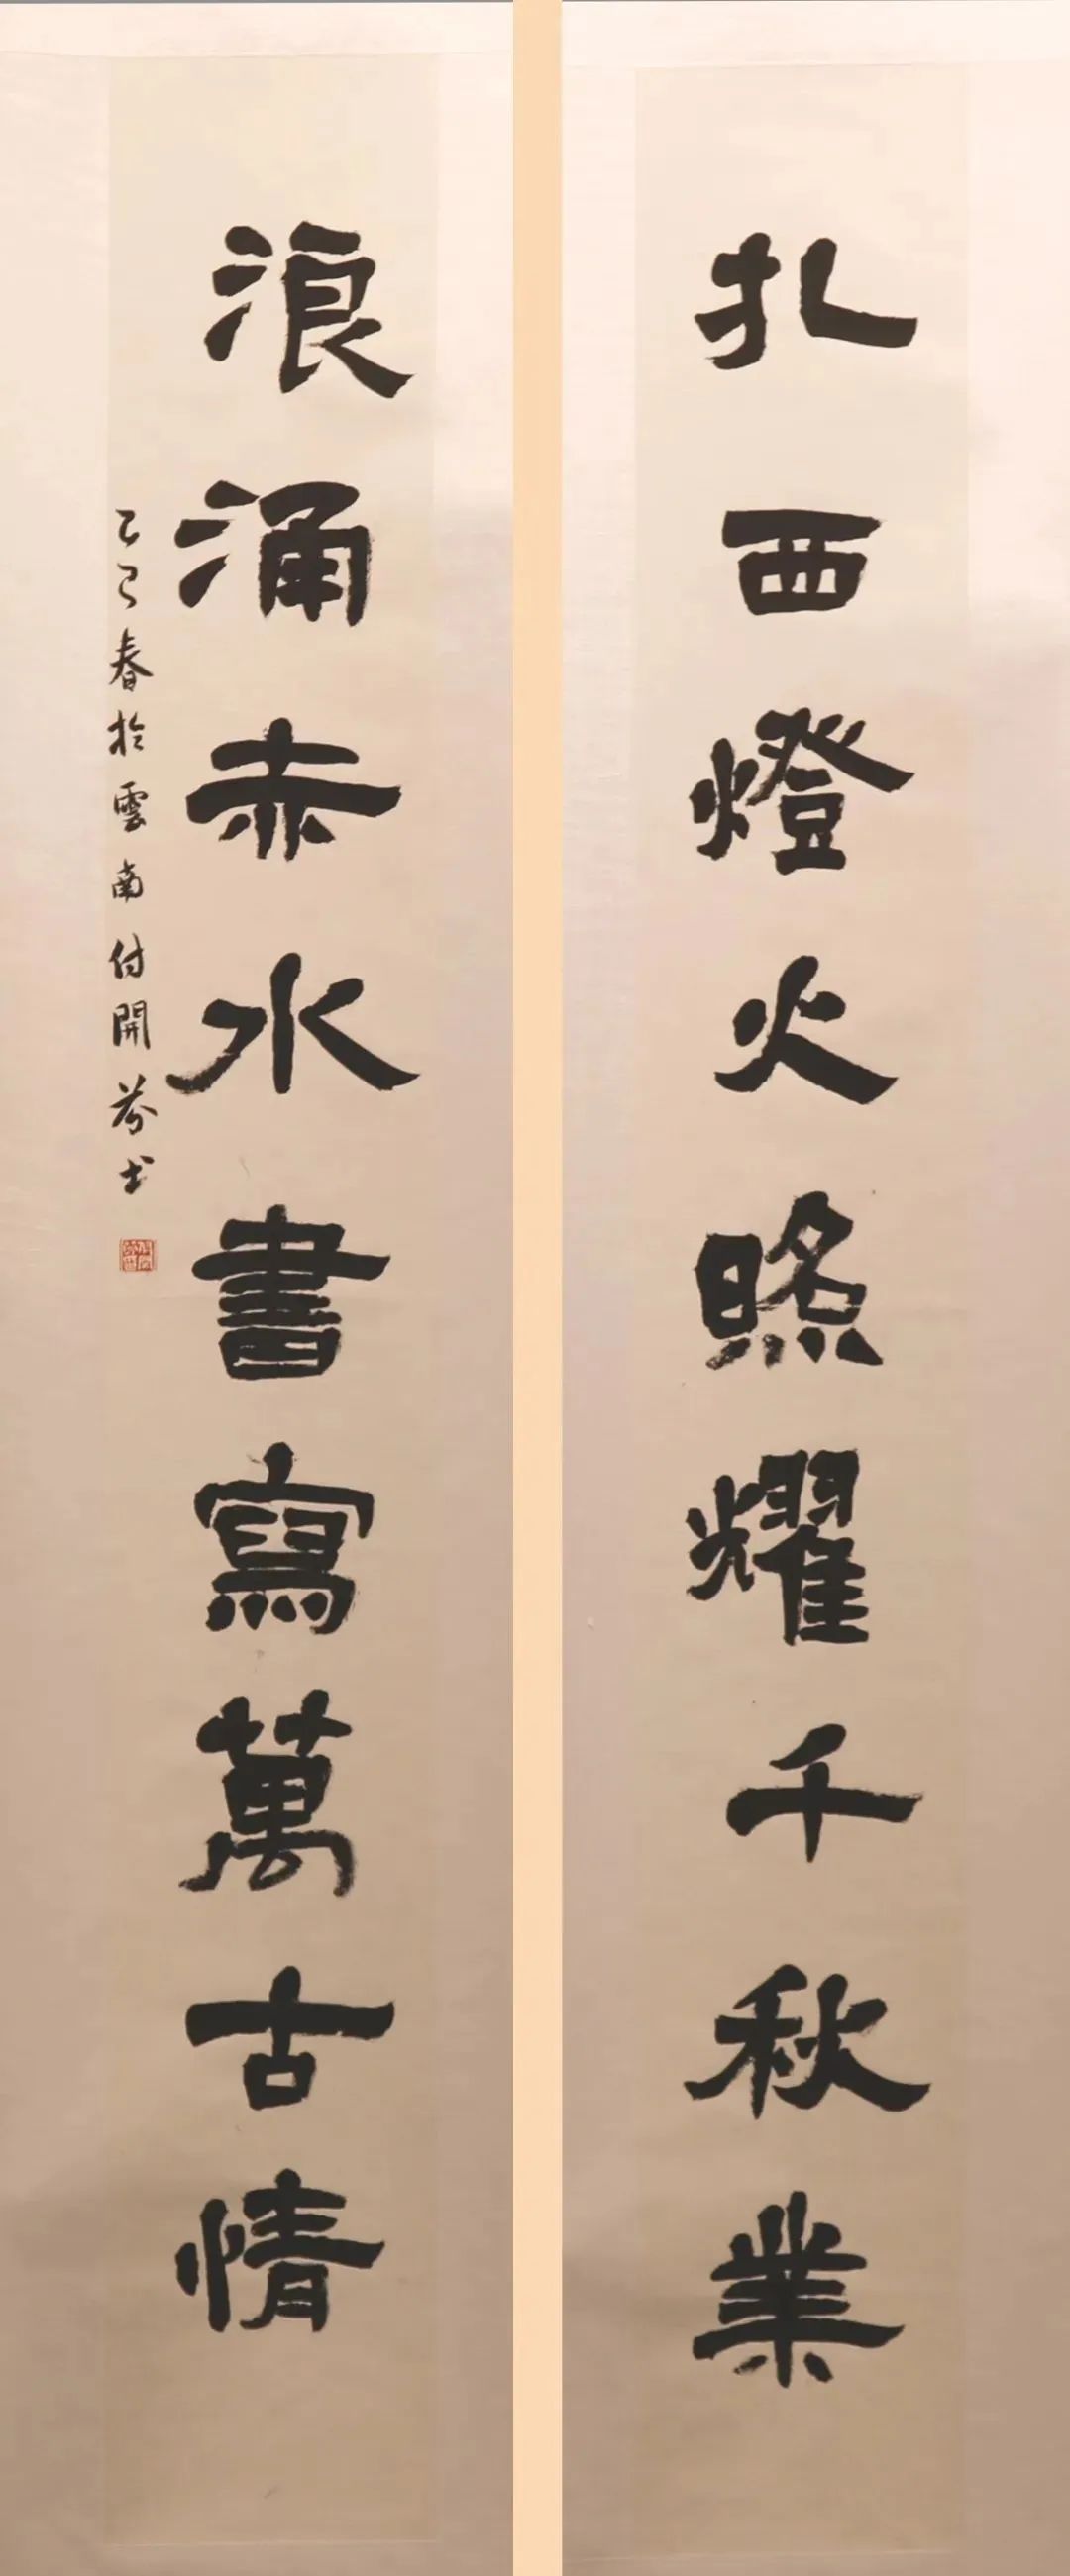 扎西燈火照耀千秋業
浪涌赤水書寫萬古情
乙巳春於雲南付開芬书